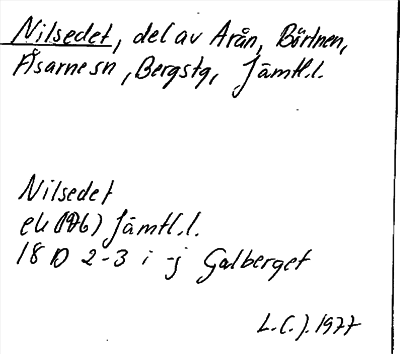 Nilsedet, del av Arån, Börtnen,
Åsarne sn, Bergs tg, Jämtl.l.
Nilsedet
ek (1976) Jämtl.l.
18 D 2-3 i-j Galberget
L.C.J. 1977